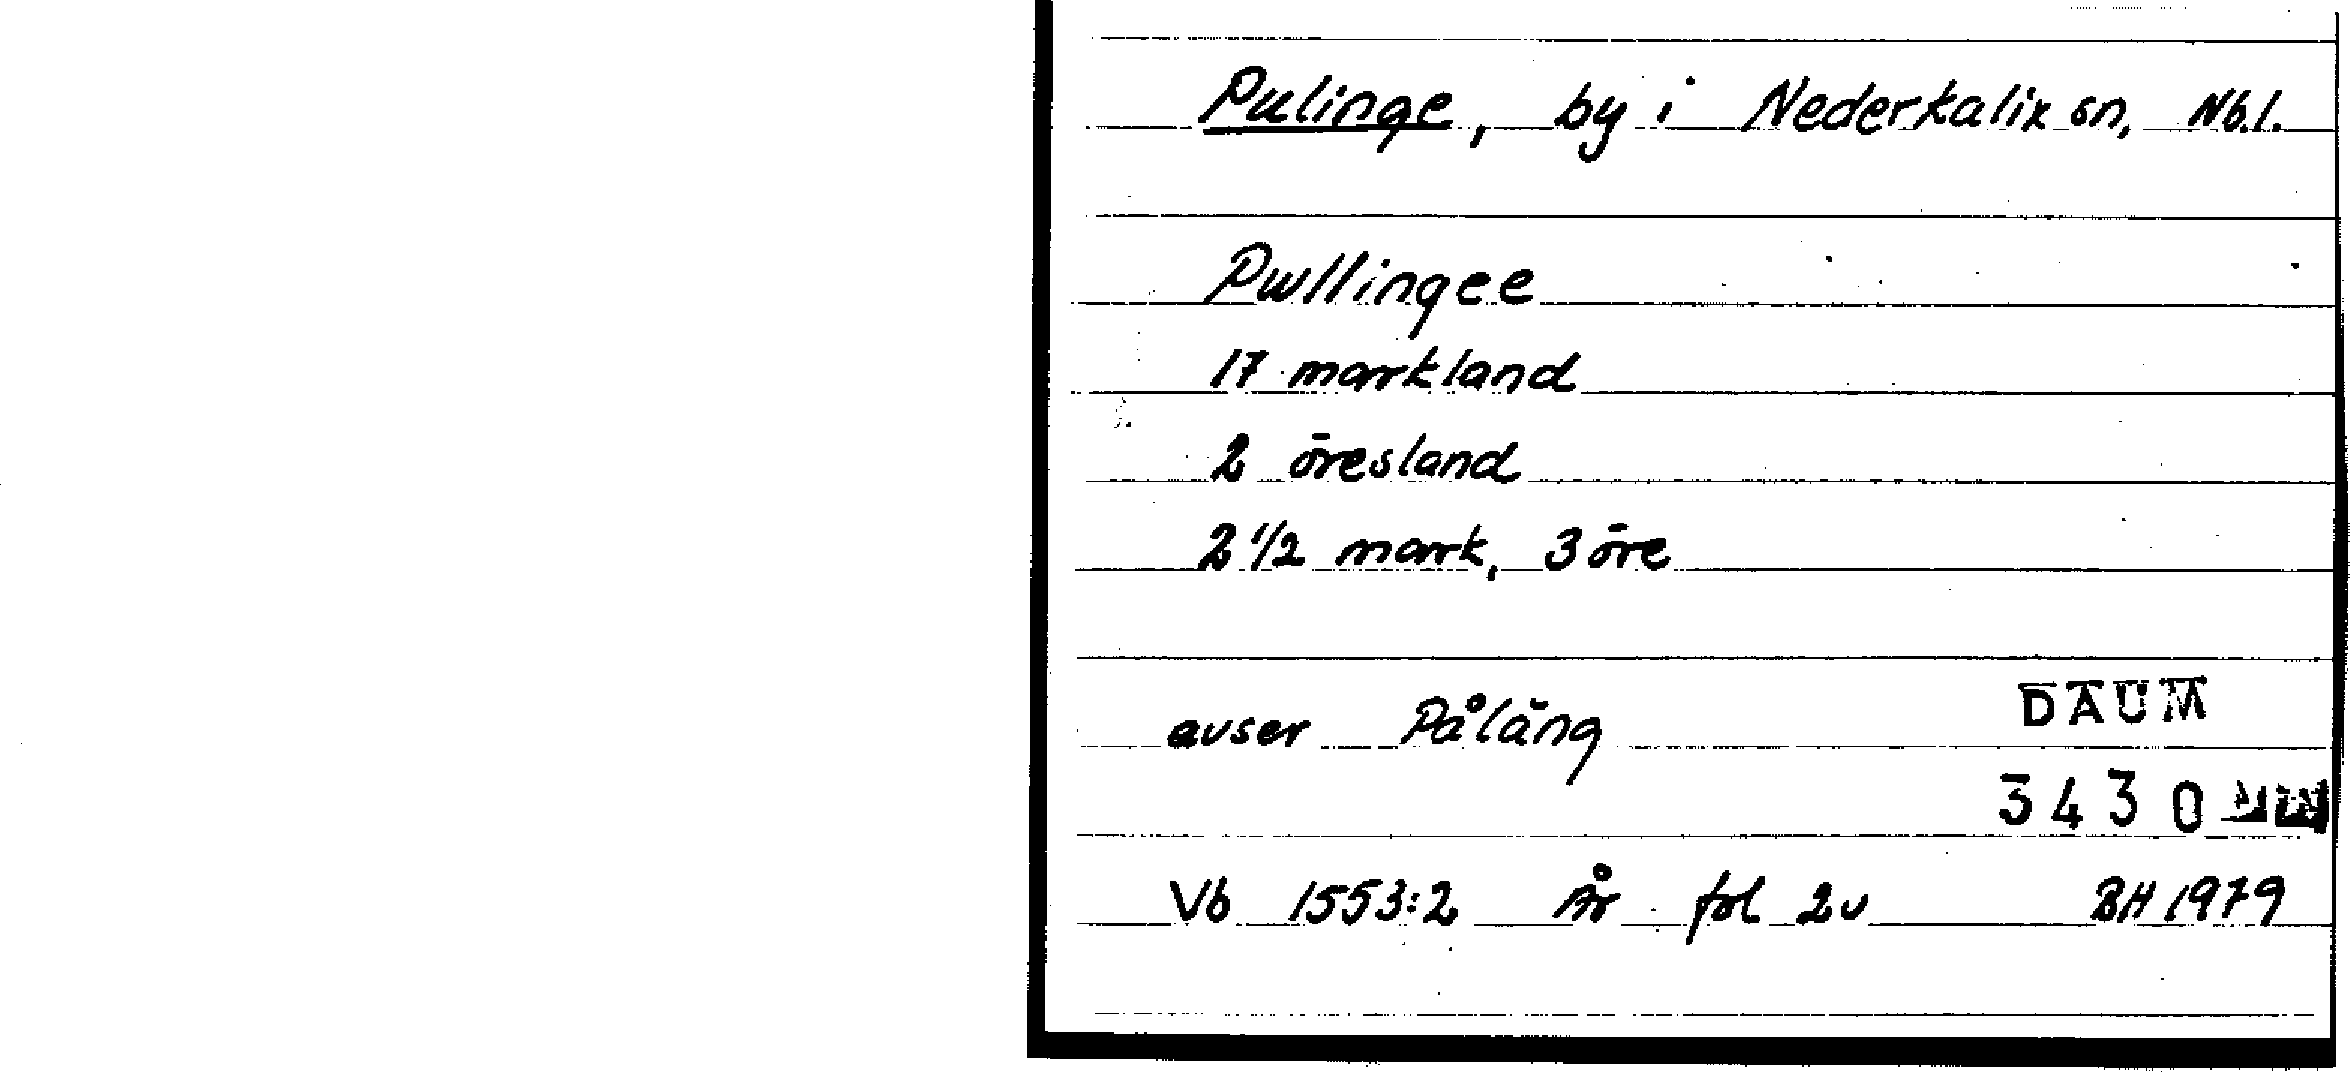 Pulinge, by i Nederkalix sn, Nb.l.
Pwllingee
17 markland
2 öresland
2 1/2 mark, 3 öre
avser Påläng
DAUM
3430
Vb 1553:2 År fol 2v BH 1979